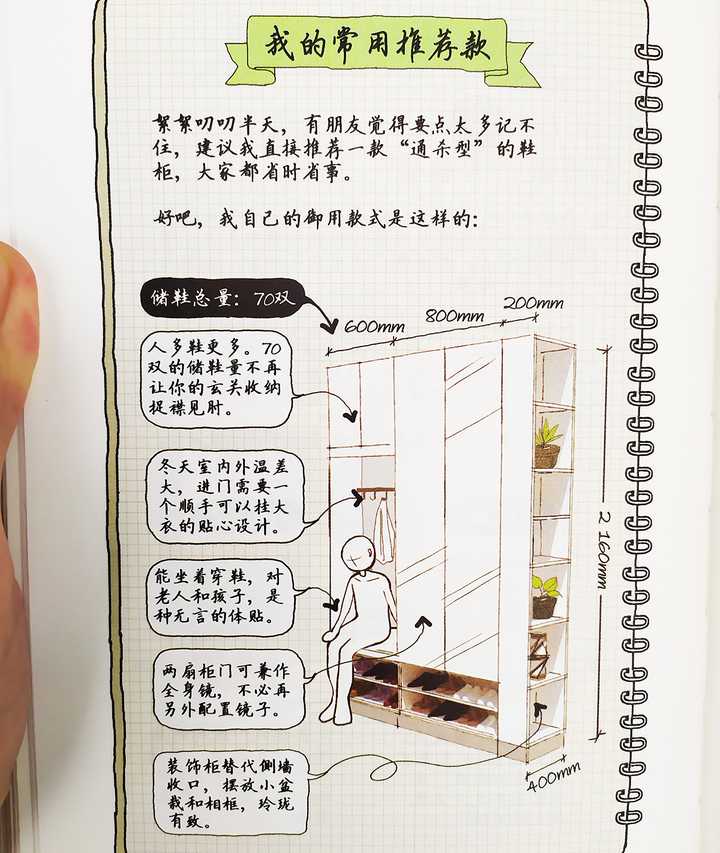 我的常用推荐款
絮絮叨叨半天，有朋友觉得要点太多记不
住，建议我直接推荐一款“通杀型”的鞋
柜，大家都省时省事。
好吧，我自己的御用款式是这样的：
储鞋总量：70双
600mm
800mm
200mm
人多鞋更多。70
双的储鞋量不再
让你的玄关收纳
捉襟见肘。
冬天室内外温差
大，进门需要一
个顺手可以挂大
衣的贴心设计。
能坐着穿鞋，对
老人和孩子，是
种无言的体贴。
两扇柜门可兼作
全身镜，不必再
另外配置镜子。
装饰柜替代侧墙
收口，摆放小盆
栽和相框，玲珑
有致。
2 160mm
400mm